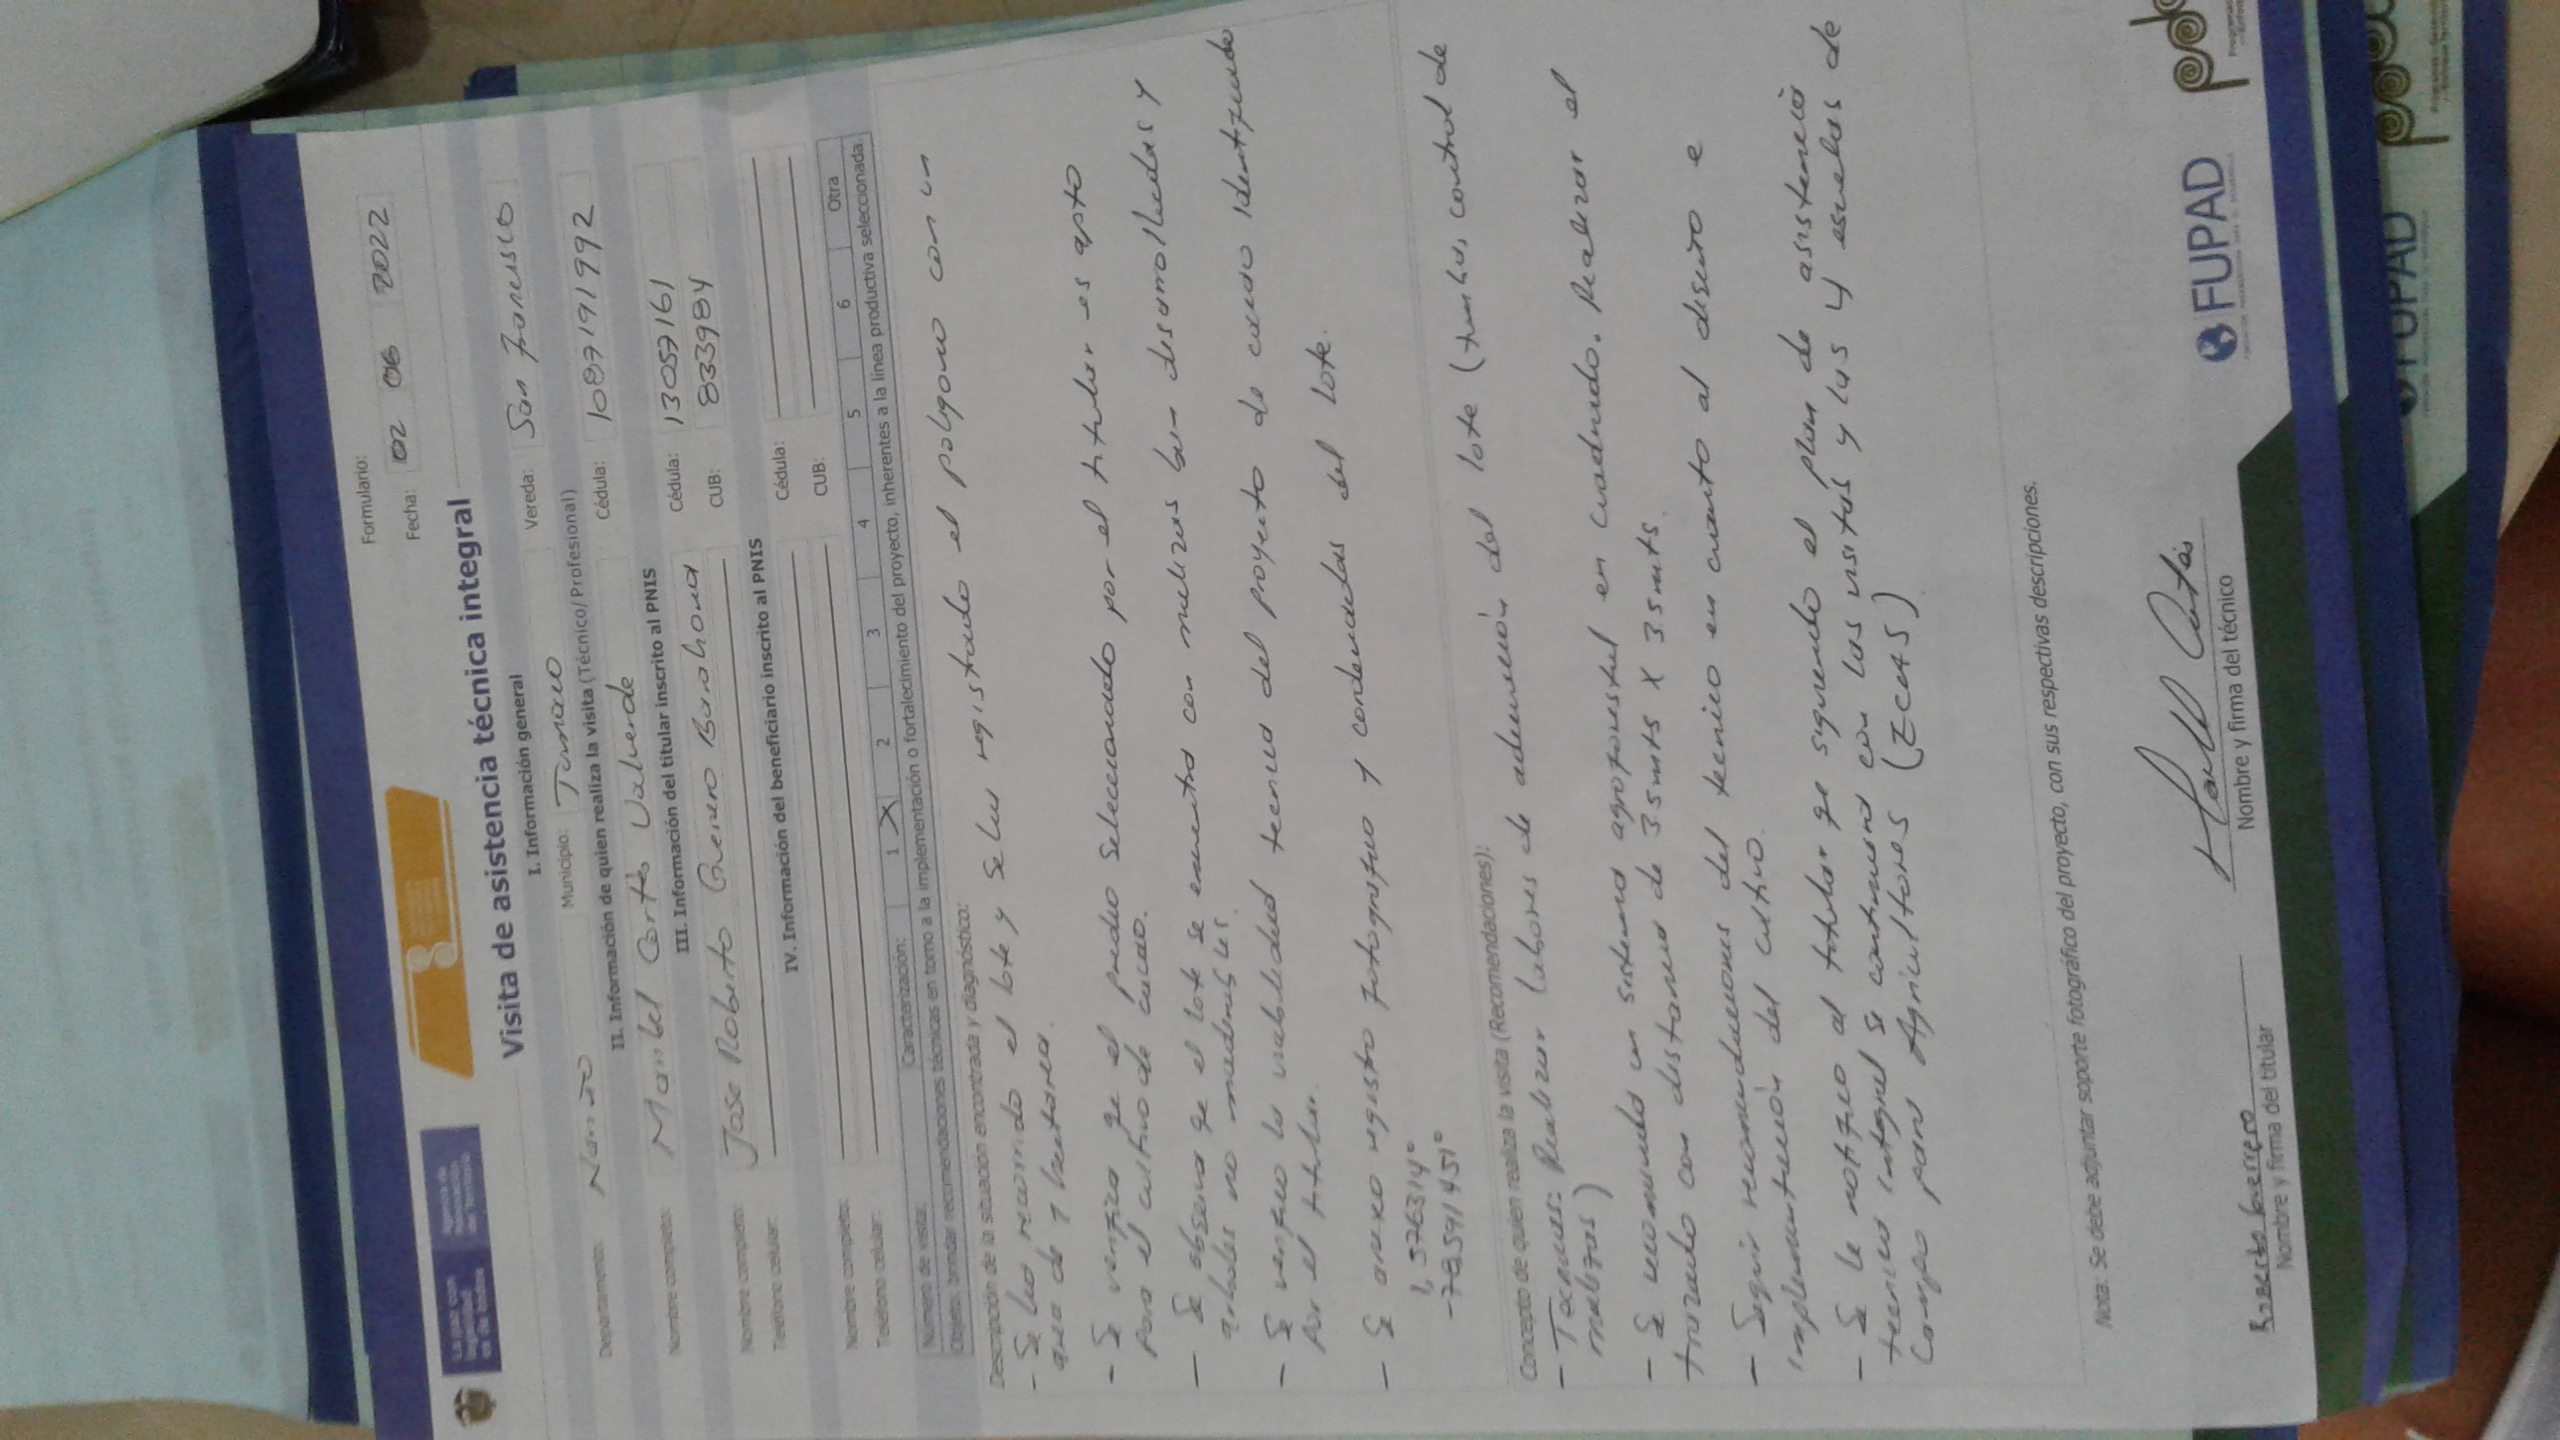 Formulario:
Fecha: 02 06 2022
Visita de asistencia técnica integral
I. Información general
Departamento: Nariño Municipio: Tumaco Vereda: San Francisco
II. Información de quien realiza la visita (Técnico/Profesional)
Nombre completo: Maribel Cortés Valverde Cédula: 1087191992
III. Información del titular inscrito al PNIS
Nombre completo: Jose Roberto Guerrero Barahona Cédula: 13057161
Teléfono celular: CUB: 833984
IV. Información del beneficiario inscrito al PNIS
Nombre completo: Cédula:
Teléfono celular: CUB:
Número de visita: Caracterización: 1 X 2 3 4 5 6 Otra
Objeto: brindar recomendaciones técnicas en torno a la implementación o fortalecimiento del proyecto, inherentes a la línea productiva seleccionada.
Descripción de la situación encontrada y diagnóstico:
- Se ha recorrido el lote y se ha registrado el polígono con un
area de 1 hectarea.
- Se verifica qe el predio seleccionado por el titular es apto
para el cultivo de cacao.
- Se observa qe el lote se encuentra con malezas bien desarrolladas y
arboles no maderables.
- Se verifico la viabilidad tecnica del proyecto de cacao identificado
por el titular.
- Se anexo registro fotografico y cordenadas del lote.
1,5763140
-78,5914510
Concepto de quien realiza la visita (Recomendaciones):
- Tecnicas: Realizar labores de adecuación del lote (tumba, control de
malezas)
- Se recomienda un sistema agroforestal en cuadrado. Realizar el
trazado con distancia de 3.5mts X 3.5mts.
- Seguir recomendaciones del tecnico en cuanto al diseño e
implementación del cultivo.
- Se le notifico al titular qe siguiendo el plan de asistencia
tecnica integral se continuara con las visitas y las 4 escuelas de
Campo para Agricultores (ECAS)
Nota: Se debe adjuntar soporte fotográfico del proyecto, con sus respectivas descripciones.
Roberto Guerrero
Nombre y firma del titular
Maribel Cortés
Nombre y firma del técnico
FUPAD
FUPAD